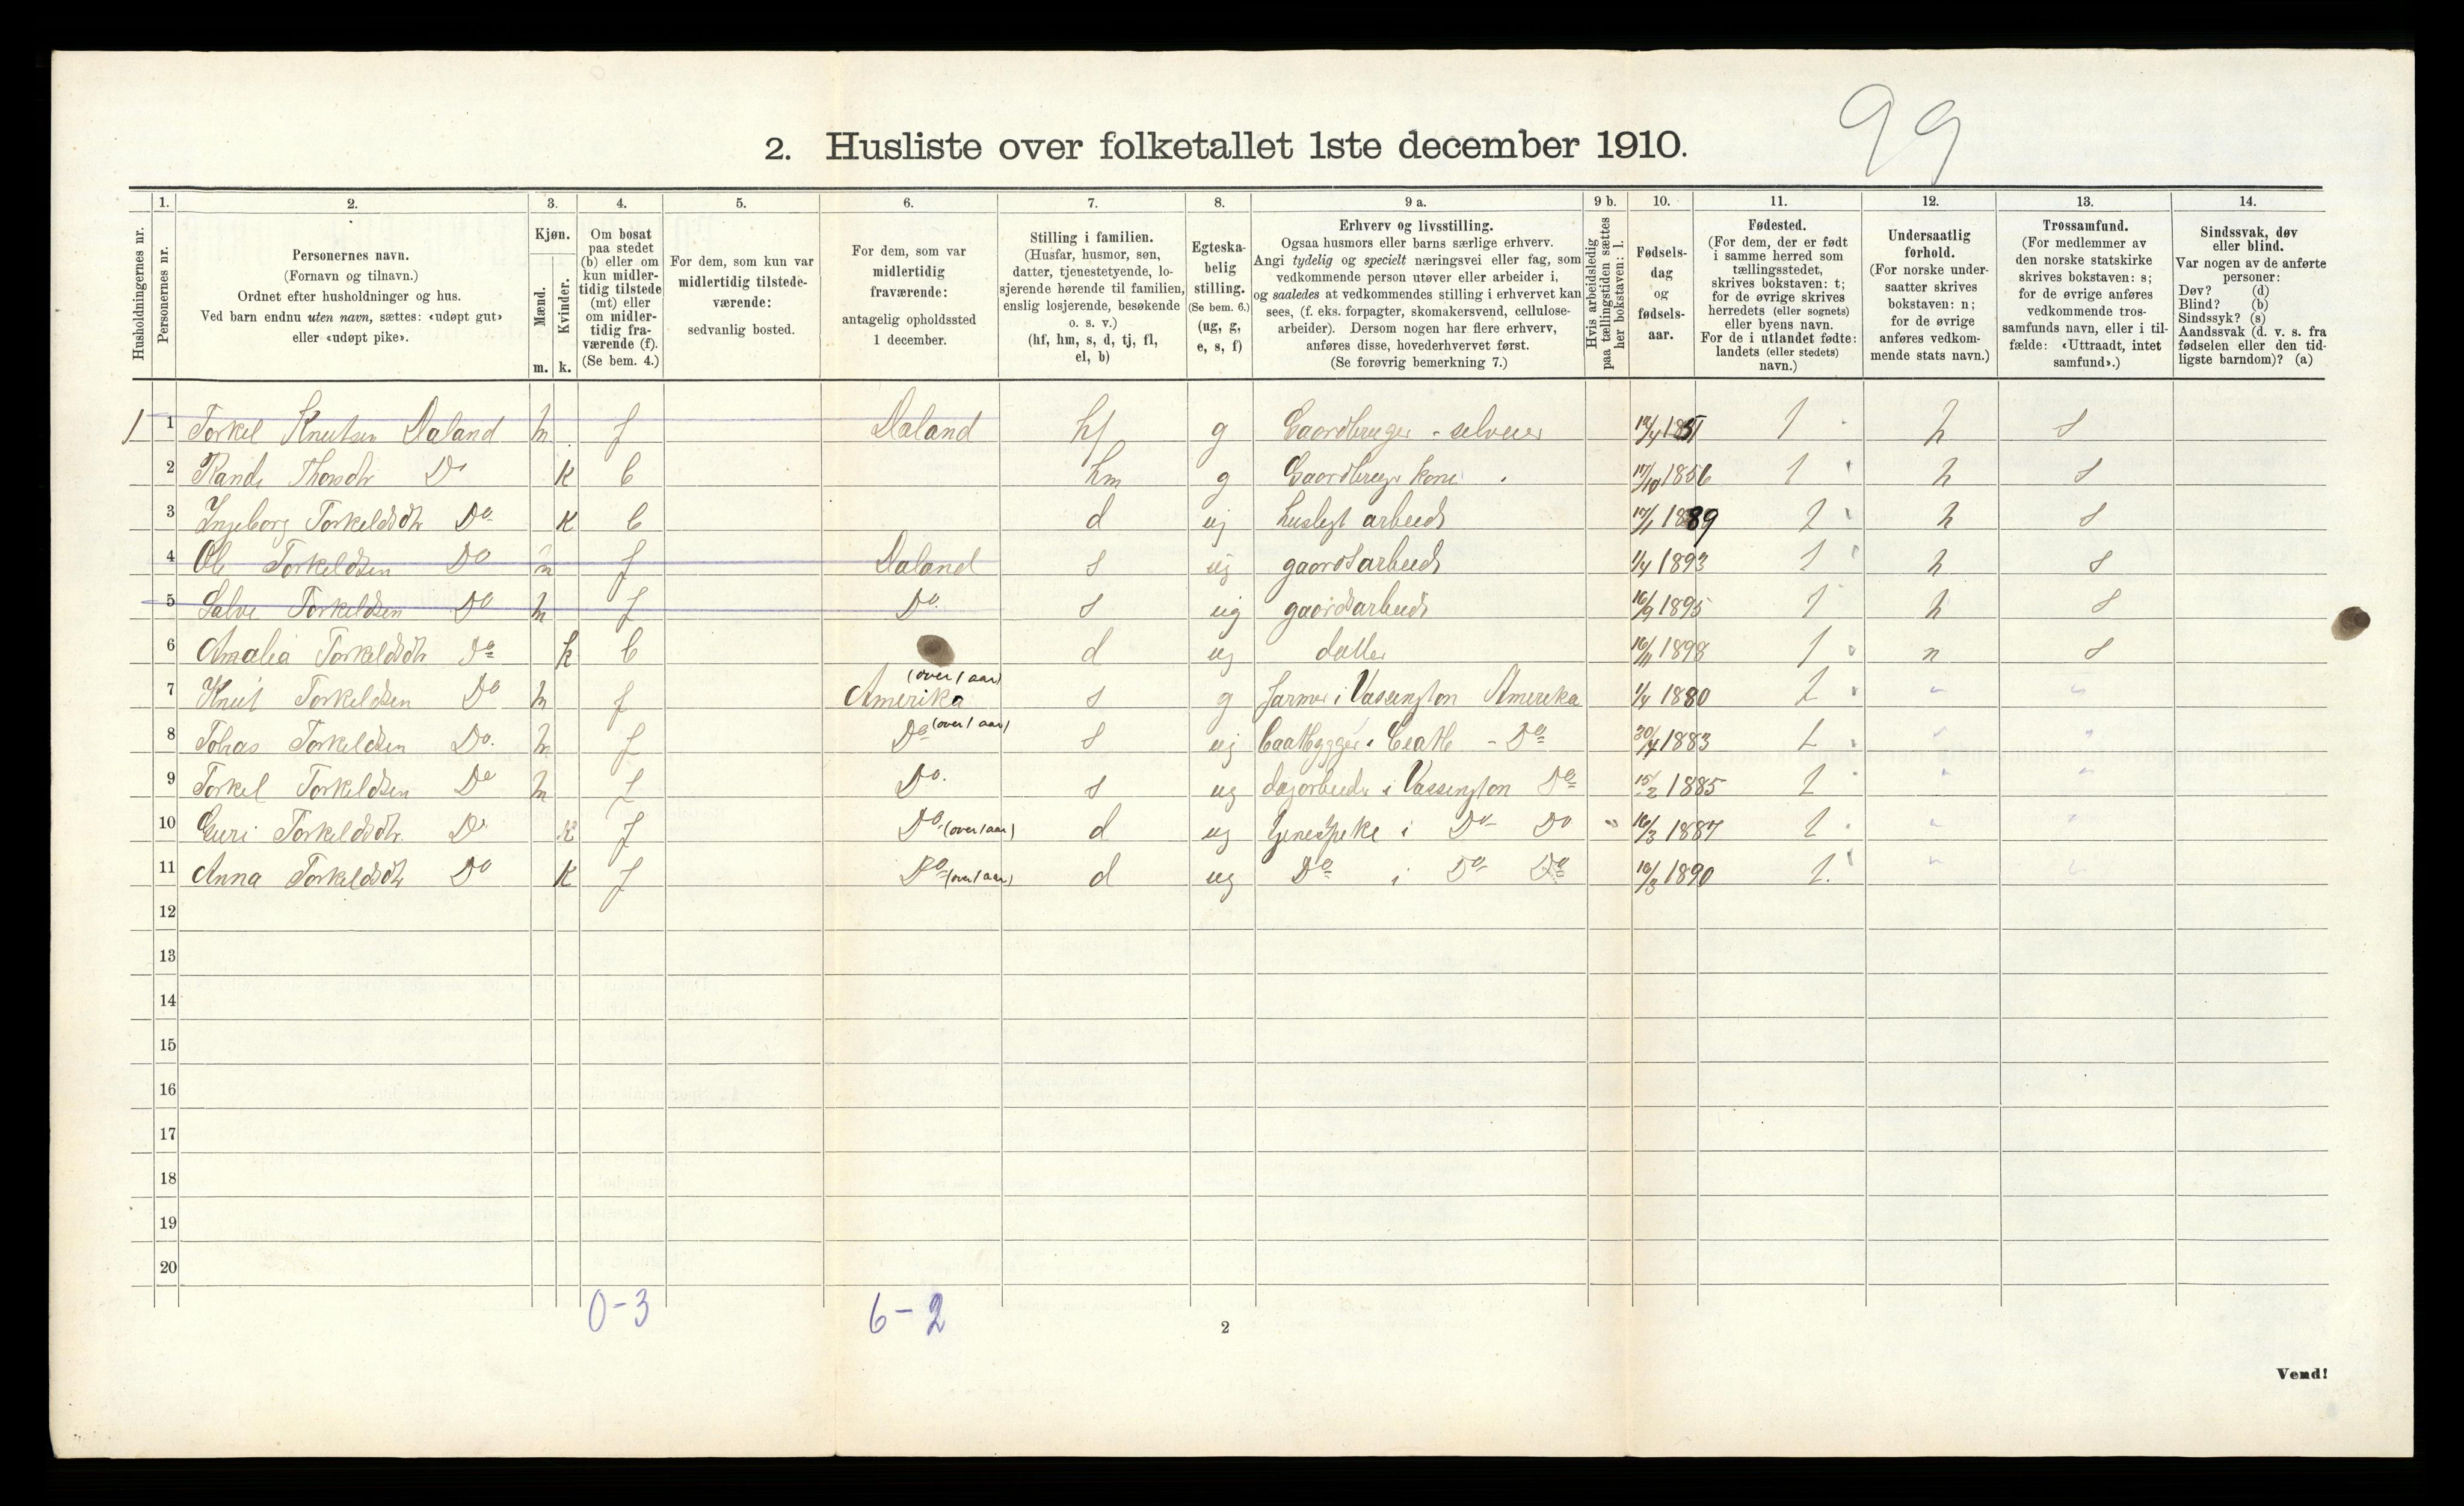 99
2. Husliste over folketallet 1ste december 1910.
Husholdningernes nr.
1.
Personernes nr.
2.
Personernes navn.
(Fornavn og tilnavn.)
Ordnet efter husholdninger og hus.
Ved barn endnu uten navn, sættes: «udøpt gut»
eller «udøpt pike».
3.
Kjøn.
Mænd.
Kvinder.
m. k.
4.
Om bosat
paa stedet
(b) eller om
kun midler-
tidig tilstede
(mt) eller
om midler-
tidig fra-
værende (f).
(Se bem. 4.)
5.
For dem, som kun var
midlertidig tilstede-
værende:
sedvanlig bosted.
6.
For dem, som var
midlertidig
fraværende:
antagelig opholdssted
1 december.
7.
Stilling i familien.
(Husfar, husmor, søn,
datter, tjenestetyende, lo-
sjerende hørende til familien,
enslig losjerende, besøkende
o. s. v.)
(hf, hm, s, d, tj, fl,
el, b)
8.
Egteska-
belig
stilling.
(Se bem. 6.)
(ug, g,
e, s, f)
9 a.
Erhverv og livsstilling.
Ogsaa husmors eller barns særlige erhverv.
Angi tydelig og specielt næringsvei eller fag, som
vedkommende person utøver eller arbeider i,
og saaledes at vedkommendes stilling i erhvervet kan
sees, (f. eks. forpagter, skomakersvend, cellulose-
arbeider). Dersom nogen har flere erhverv,
anføres disse, hovederhvervet først.
(Se forøvrig bemerkning 7.)
9 b.
Hvis arbeidsledig
paa tællingstiden sættes
her bokstaven: l.
10.
Fødsels-
dag
og
fødsels-
aar.
11.
Fødested.
(For dem, der er født
i samme herred som
tællingsstedet,
skrives bokstaven: t;
for de øvrige skrives
herredets (eller sognets)
eller byens navn.
For de i utlandet fødte:
landets (eller stedets)
navn.)
12.
Undersaatlig
forhold.
(For norske under-
saatter skrives
bokstaven: n;
for de øvrige
anføres vedkom-
mende stats navn.)
13.
Trossamfund.
(For medlemmer av
den norske statskirke
skrives bokstaven: s;
for de øvrige anføres
vedkommende tros-
samfunds navn, eller i til-
fælde: «Uttraadt, intet
samfund».)
14.
Sindssvak, døv
eller blind.
Var nogen av de anførte
personer:
Døv? (d)
Blind? (b)
Sindssyk? (s)
Aandssvak (d. v. s. fra
fødselen eller den tid-
ligste barndom)? (a)
1 1 Torkel Knutsen Daland m f Daland hf g Gaordbruger - selveier 1851 t n s
2 Thorsdtr Do k b hm g Gaordbruger kone 17/10 1856 t n s
3 Ingeborg Torkeldsdtr Do k b d ug husligt arbeide 17/1 1889 t n s
4 Ole Torkeldsen Do m f Daland s ug gaordsarbeide 1/4 1893 t n s
5 Salve Torkeldsen Do m f Do s ug gaordsarbeide 16/9 1895 t n s
6 Amalia Torkeldsdtr Do k b d ug datter 16/11 1898 t n s
7 Knut Torkeldsen Do m f (over 1 aar) Amerika s g farmer i Vassington Amerika 1/4 1880 t
8 Tobias Torkeldsen Do m f Do (over 1 aar) s ug Do 1883 t
9 Torkel Torkeldsen Do m f Do s ug dagarbeide i Vassington Do 15/2 1885 t
10 Guri Torkeldsdtr Do k f Do (over 1 aar) d ug i Do Do 16/3 1887 t
11 Anna Torkeldsdtr Do k f Do (over 1 aar) d ug Do i Do Do 16/3 1890 t
12
13
14
15
16
17
18
19
20
0-3 6-2
2
Vend!